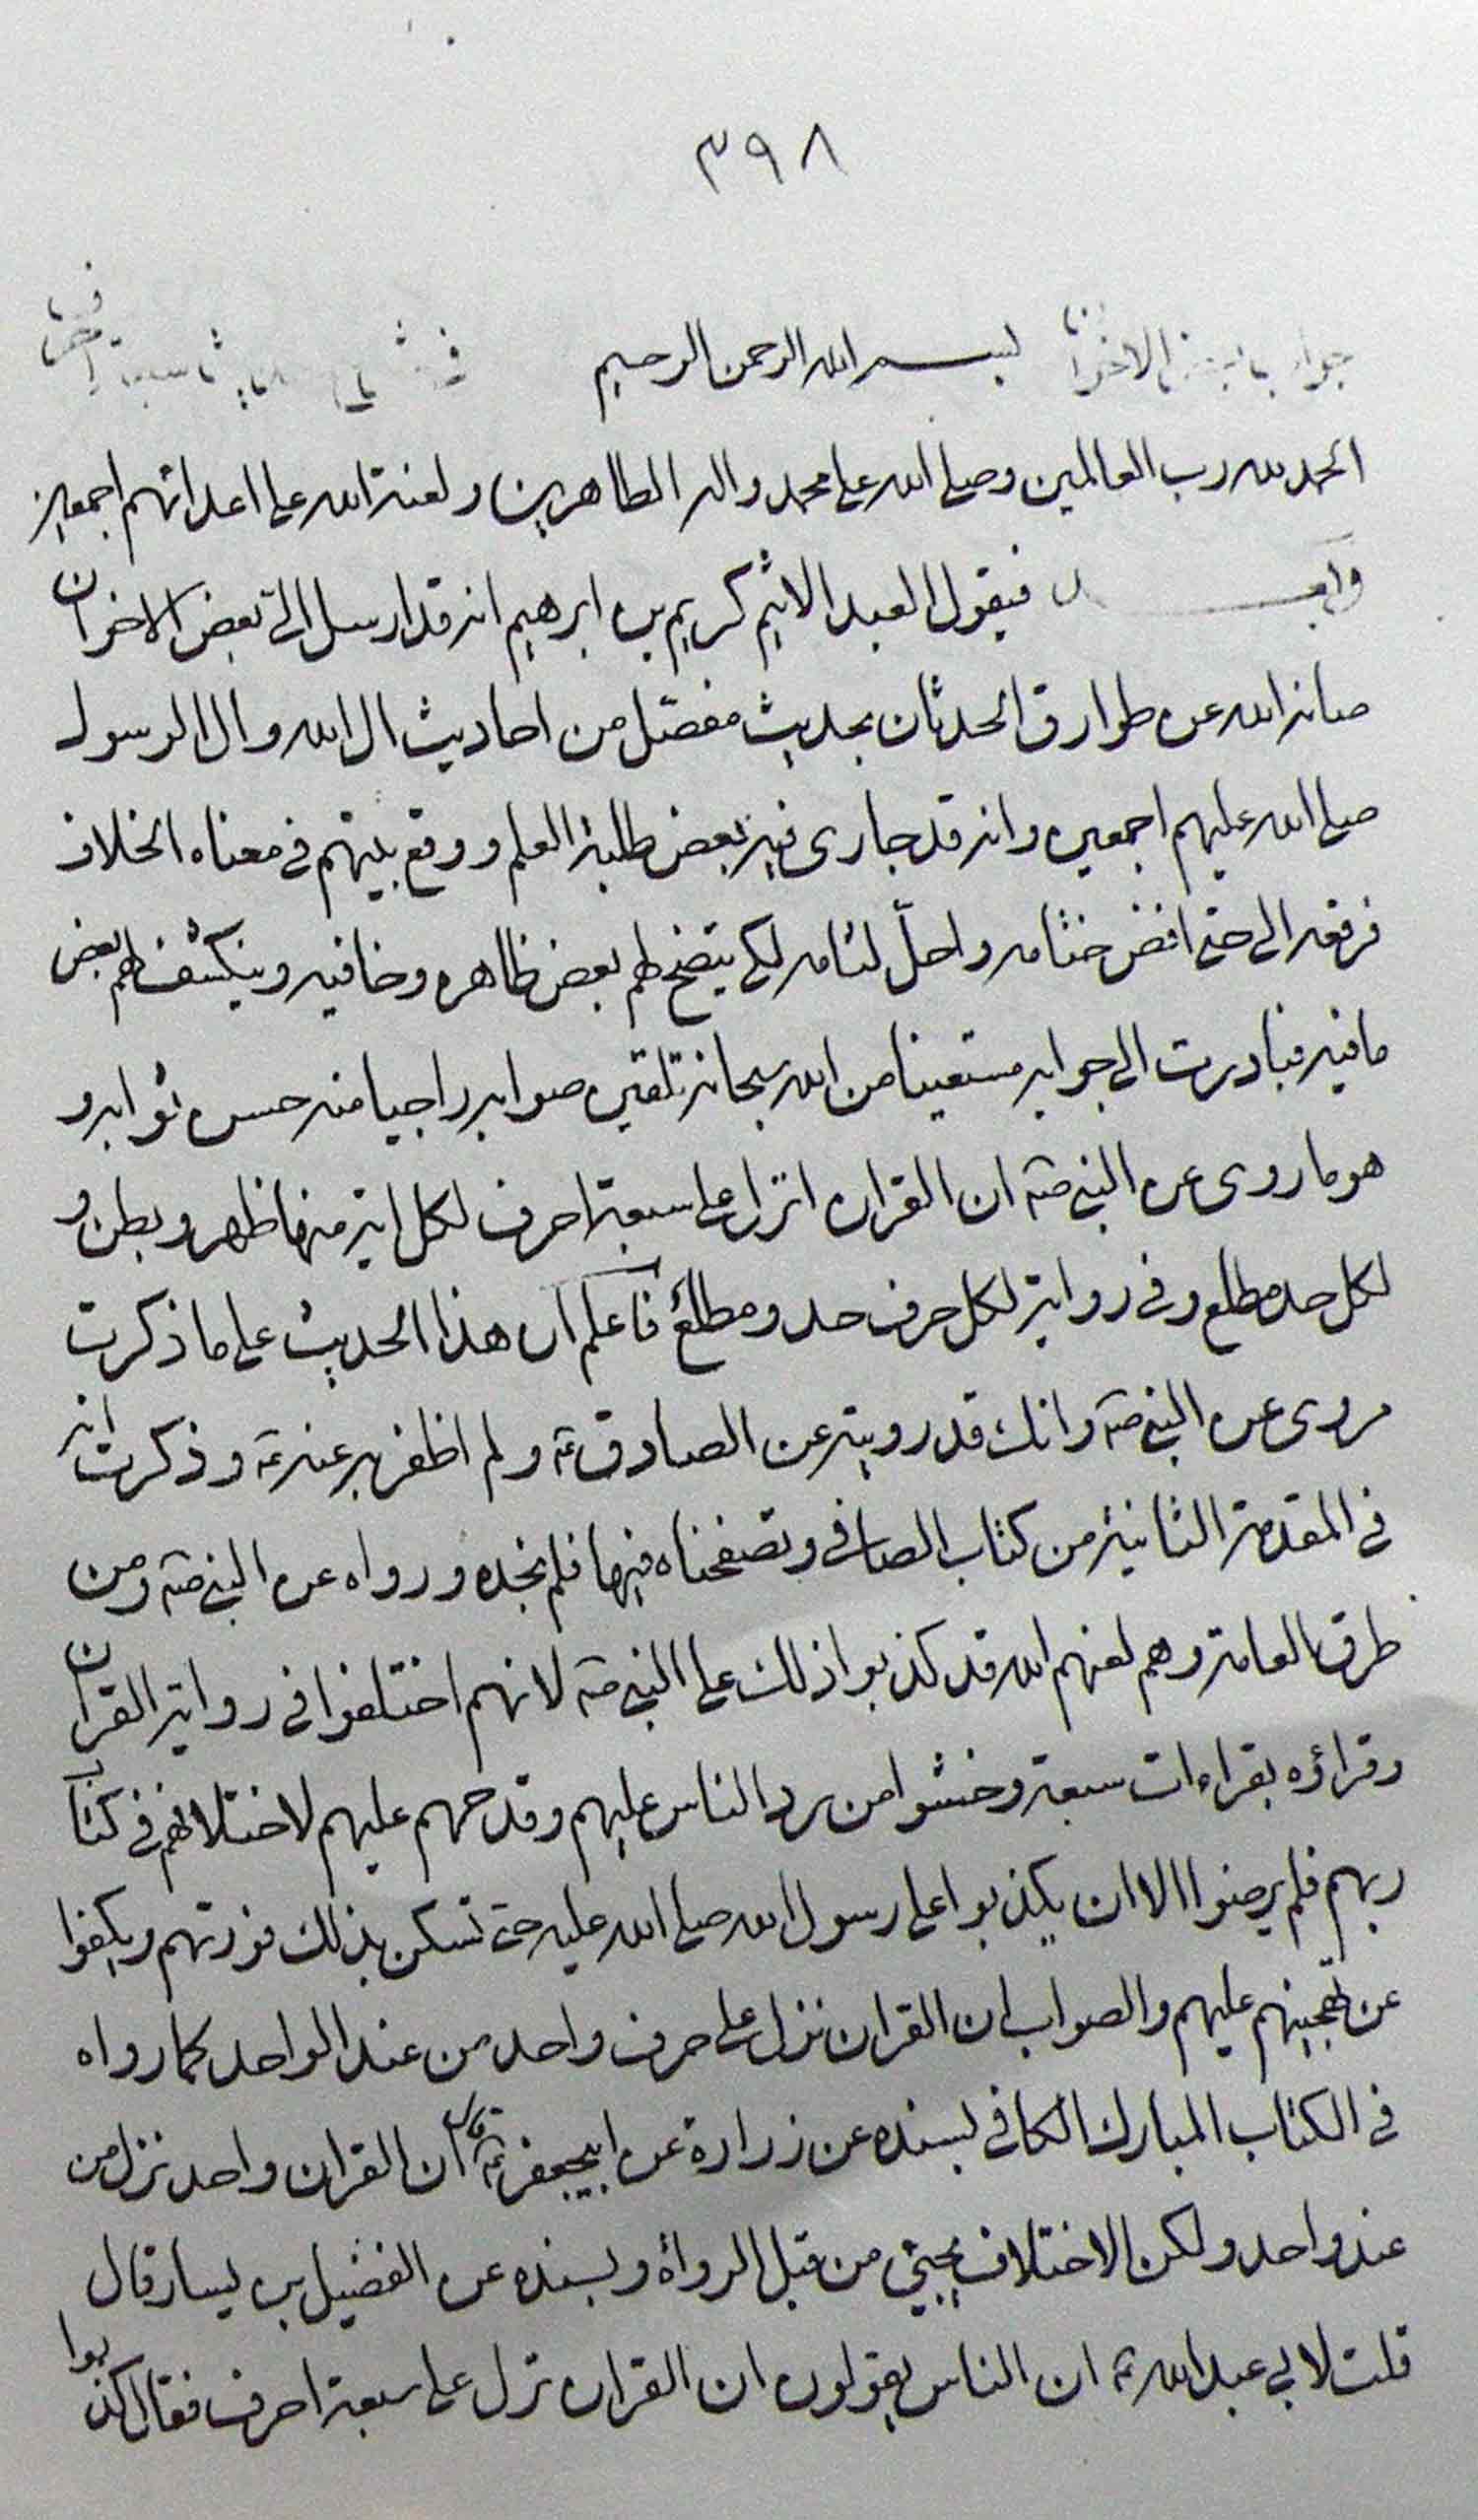 ٣٩٨
بسم الله الرحمن الرحيم
الحمد لله رب العالمين وصلى الله على محمد واله الطاهرين ولعنة الله على اعدائهم اجمعين
وبعد فيقول العبد الاثيم كريم بن ابرهيم انه قد ارسل الىّ بعض الاخوان
صانه الله عن طوارق الحدثان بحديث مفصّل من احاديث ال الله وال الرسول
صلى الله عليهم اجمعين وانه قد جارى فيه بعض طلبة العلم ووقع بينهم فى معناه الخلاف
فرفعه الى حتى افض ختامه واحلّ لثامه لكى يتضح لهم بعض ظاهره وخافيه وينكشف لهم بعض
ما فيه فبادرت الى جوابه مستعينا من الله سبحانه تلقين صوابه راجيا منه حسن ثوابه و
هو ما روى عن النبى صۤ ان القران انزل على سبعة احرف لكل اية منها ظهر وبطن و
لكل حد مطلع وفى رواية لكل حرف حد ومطلع فاعلم ان هذا الحديث على ما ذكرت
مروى عن النبى صۤ وانك قد رويته عن الصادق عۤ ولم اظفر به عنه عۤ وذكرت انه
فى المقدمة الثانية من كتاب الصافى وتصفحناه فيها فلم نجده ورواه عن النبى صۤ ومن
طرق العامة وهم لعنهم الله قد كذبوا ذلك على النبى صۤ لانهم اختلفوا فى رواية القران
وقراؤه بقراءات سبعة وخشوا من رد الناس عليهم وقدحهم عليهم لاختلافهم فى كتاب
ربهم فلم يرضوا الا ان يكذبوا على رسول الله صلى الله عليه حتى تسكن بذلك فورتهم ويكفوا
عن تهجينهم عليهم والصواب ان القران نزل على حرف واحد من عند الواحد كما رواه
فى الكتاب المبارك الكافى بسنده عن زرارة عن ابيجعفر عۤ قال ان القران واحد نزل من
عند واحد ولكن الاختلاف يجيئ من قبل الرواة وبسنده عن الفضيل بن يسار قال
قلت لابي عبد الله عۤ ان الناس يقولون ان القران نزل على سبعة احرف فقال كذبوا